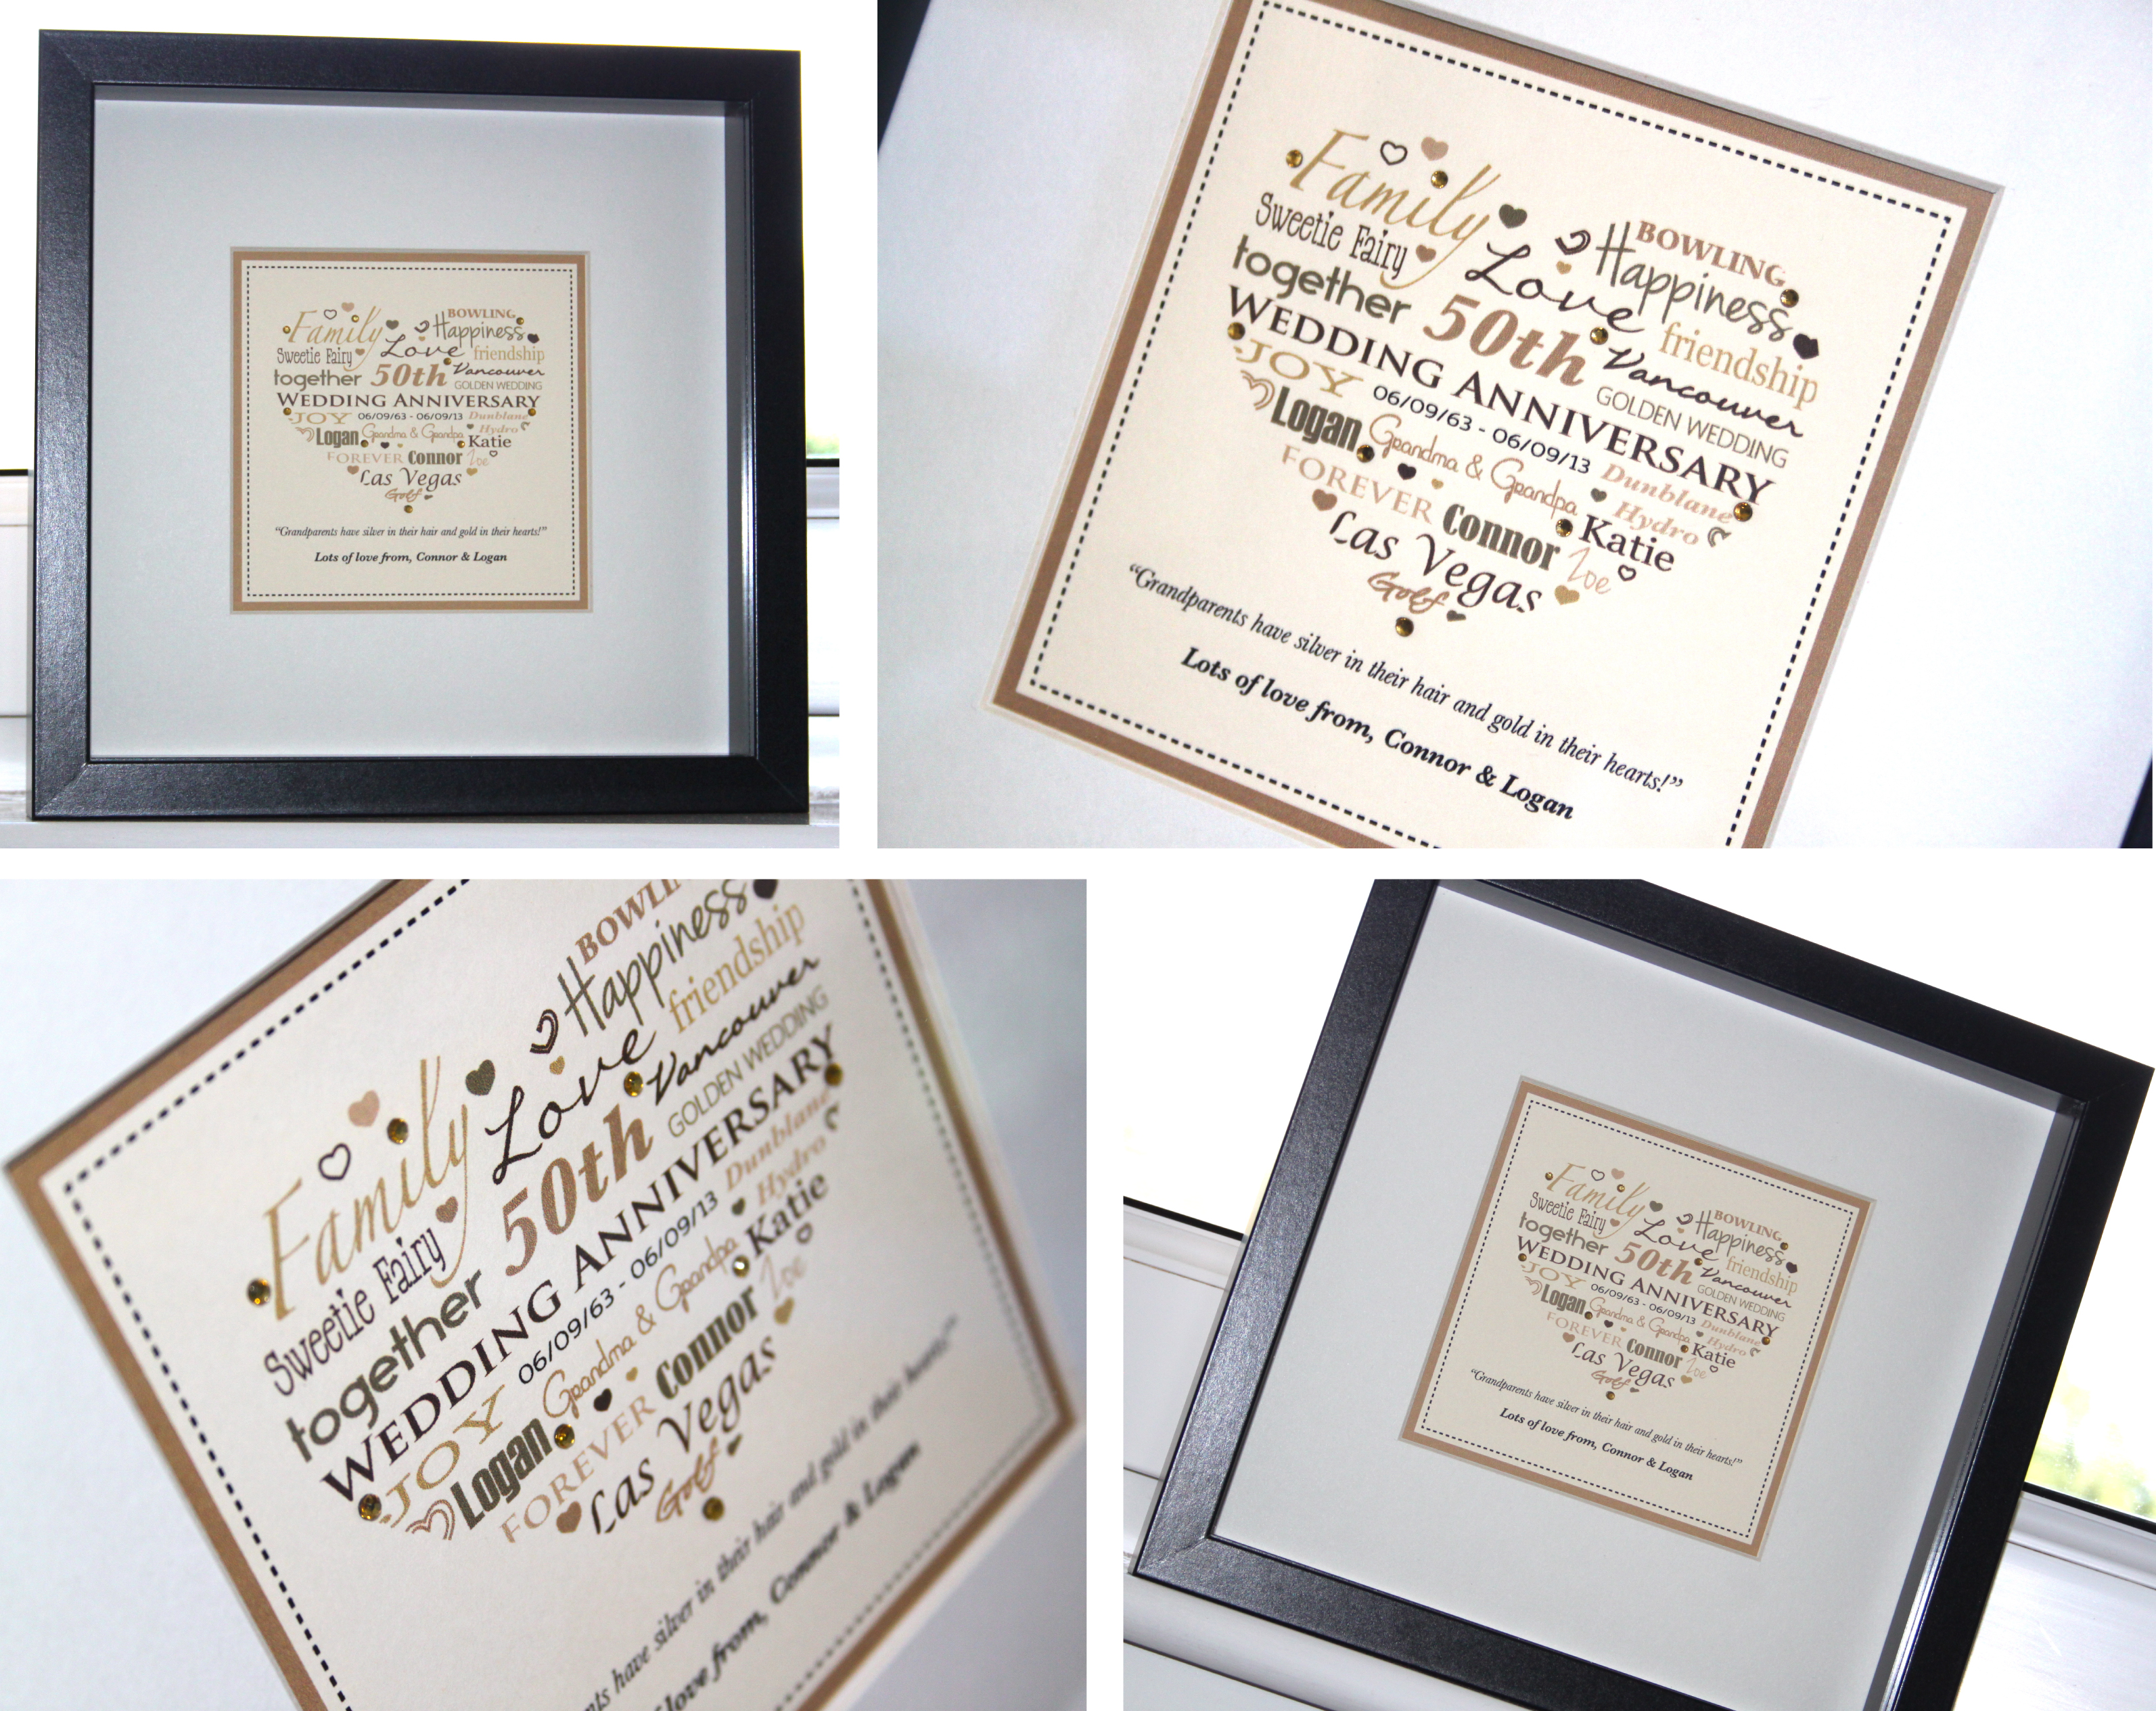 Family BOWLING
Happiness
Sweetie Fairy Love friendship
together 50th Vancouver
GOLDEN WEDDING
WEDDING ANNIVERSARY
JOY 06/09/63 - 06/09/13 Dunblane
Logan Grandma & Grandpa Hydro
Katie
FOREVER Connor Zoe
Las Vegas
Golf
“Grandparents have silver in their hair and gold in their hearts!”
Lots of love from, Connor & Logan
Family BOWLING
Happiness
Sweetie Fairy Love friendship
together 50th Vancouver
GOLDEN WEDDING
WEDDING ANNIVERSARY
JOY 06/09/63 - 06/09/13 Dunblane
Logan Grandma & Grandpa Hydro
Katie
FOREVER Connor Zoe
Las Vegas
Golf
“Grandparents have silver in their hair and gold in their hearts!”
Lots of love from, Connor & Logan
Family
Happiness
Sweetie Fairy Love friendship
together 50th Vancouver
GOLDEN WEDDING
WEDDING ANNIVERSARY
JOY 06/09/63 - 06/09/13 Dunblane
Logan Grandma & Grandpa Hydro
Katie
FOREVER Connor Zoe
Las Vegas
Golf
have silver in their hair and gold in their hearts!”
love from, Connor & Logan
Family BOWLING
Happiness
Sweetie Fairy Love friendship
together 50th Vancouver
GOLDEN WEDDING
WEDDING ANNIVERSARY
JOY 06/09/63 - 06/09/13 Dunblane
Logan Grandma & Grandpa Hydro
Katie
FOREVER Connor Zoe
Las Vegas
Golf
“Grandparents have silver in their hair and gold in their hearts!”
Lots of love from, Connor & Logan